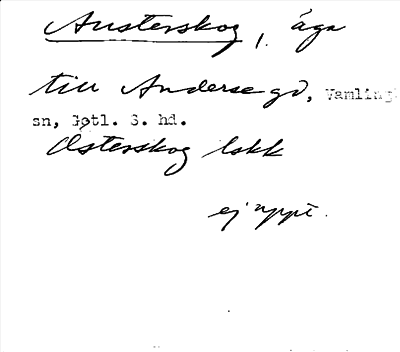 Austerskog, äga
till Anderse gd, Vamling
sn, Gotl. S. hd.
Österskog lskk
ej uppt.